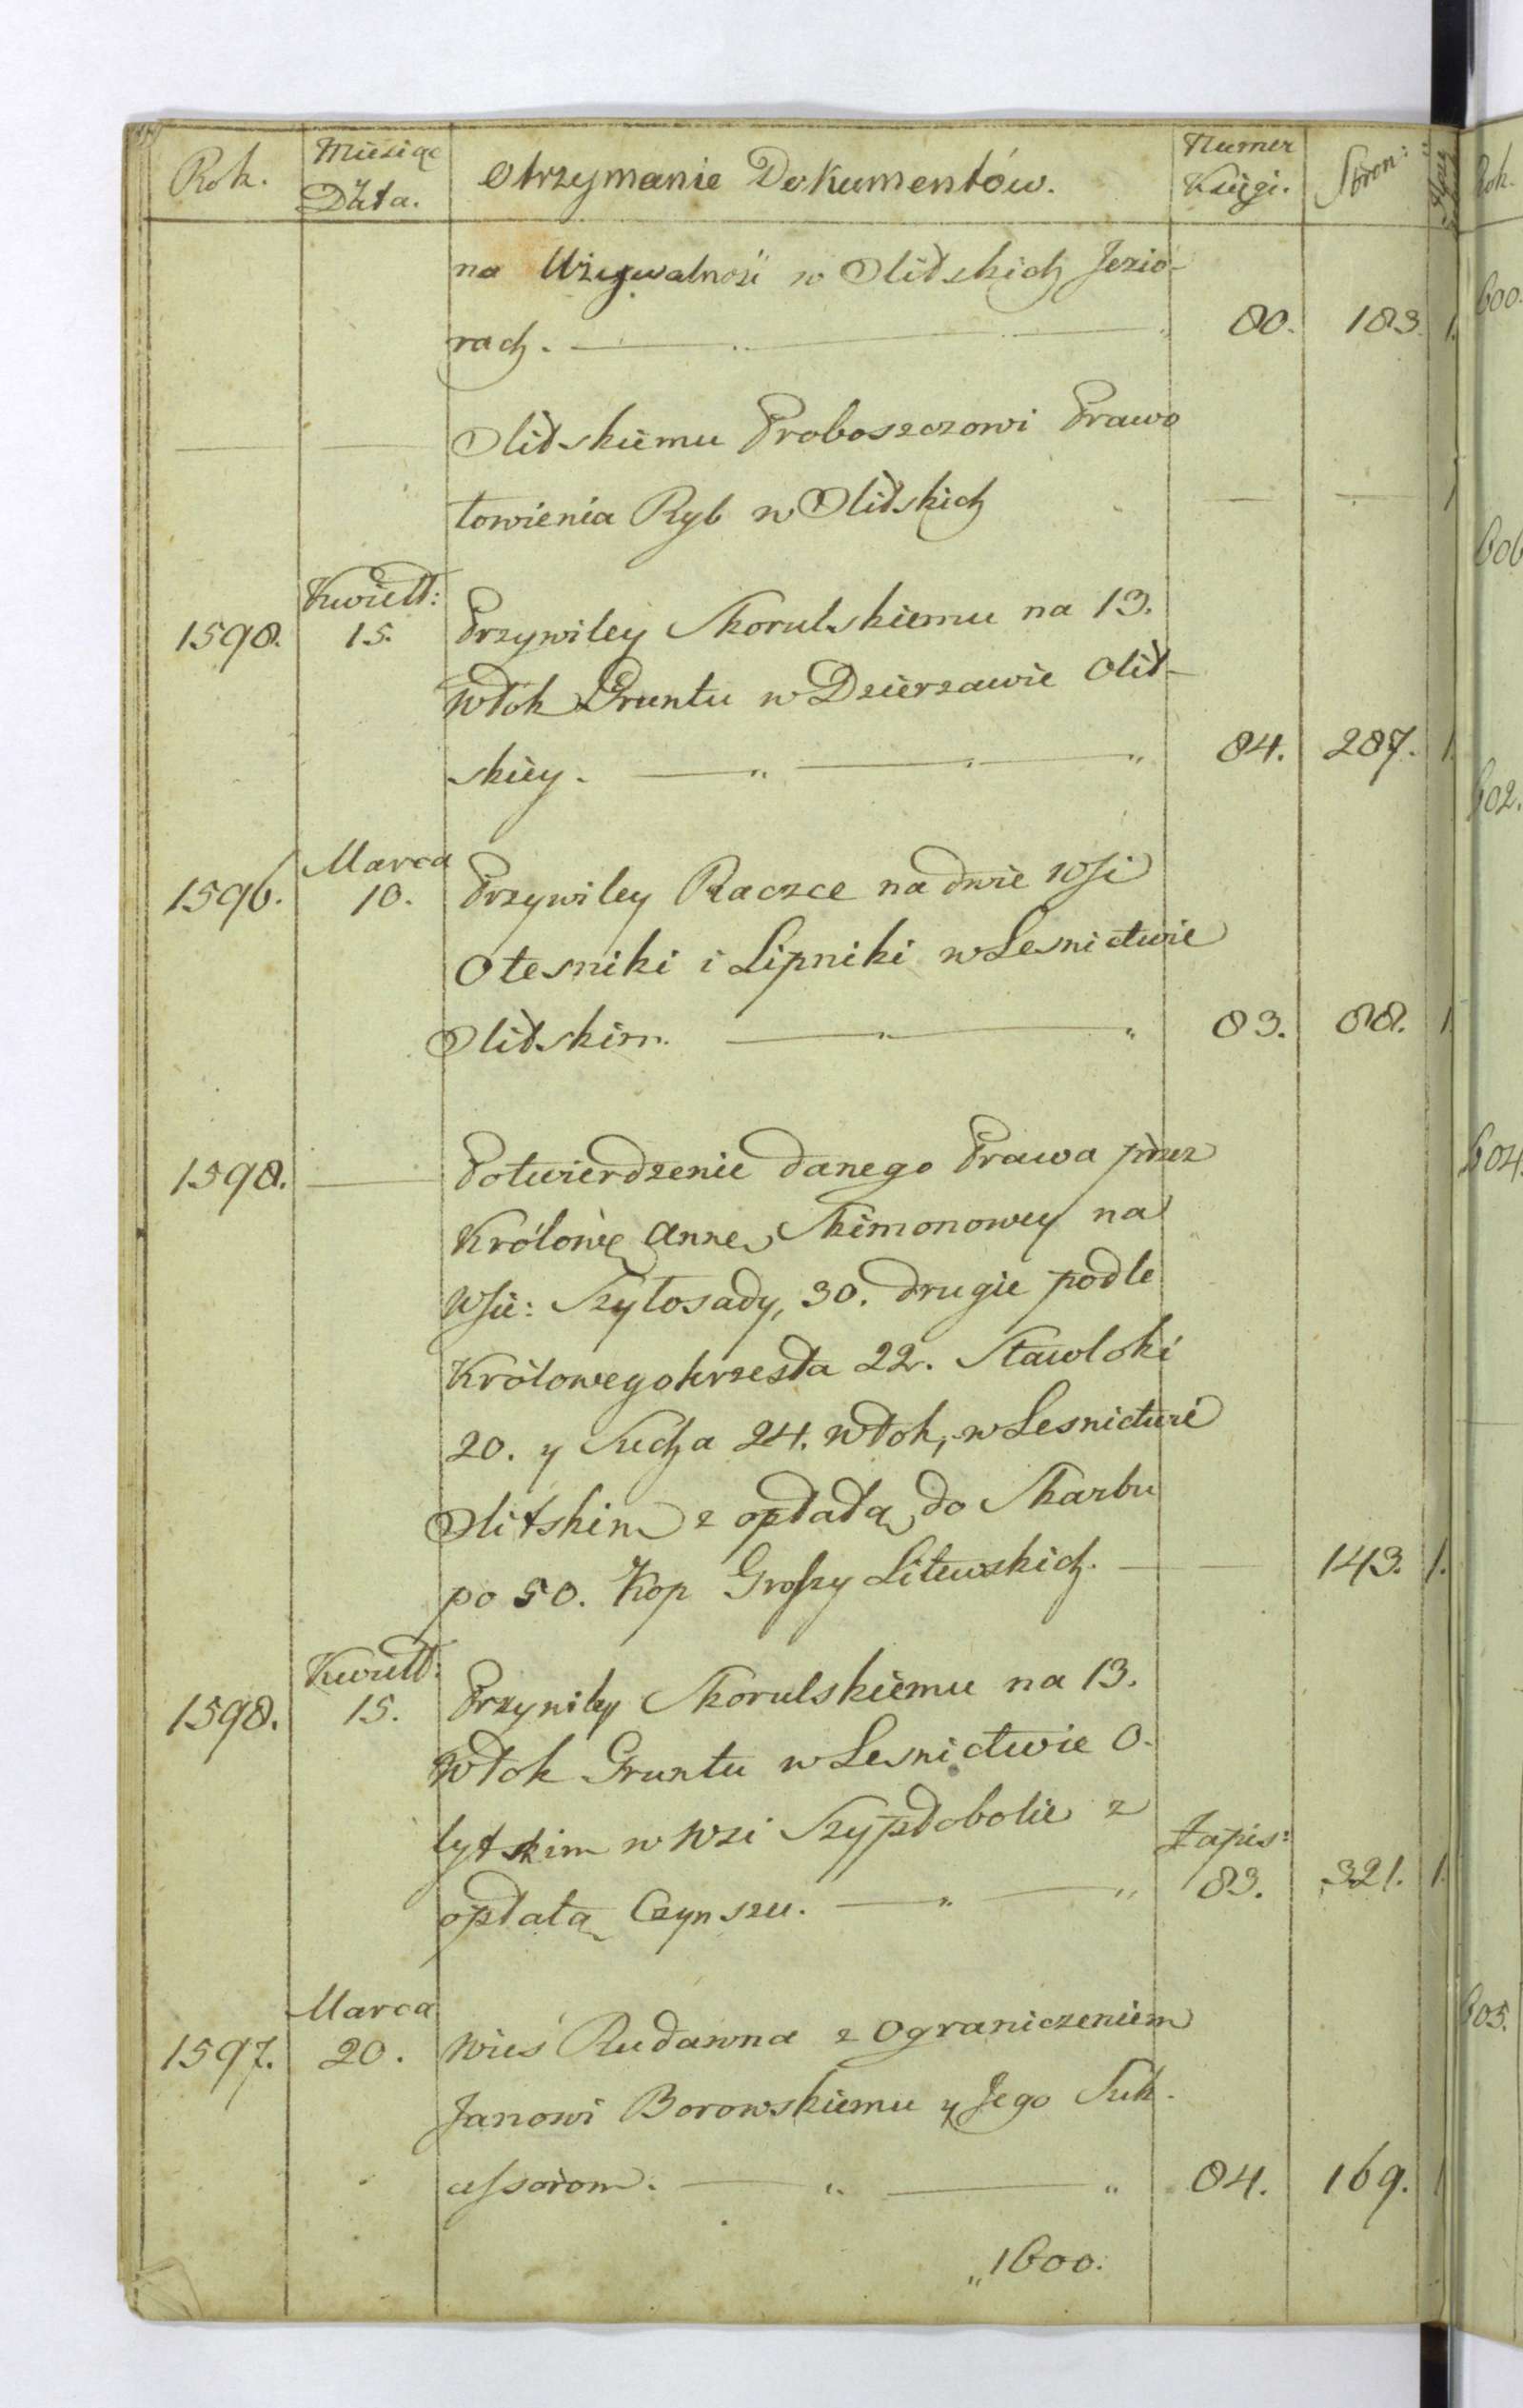 Rok. Miesiąc Data. Otrzymanie Dokumentów. Numer Księgi. Stron:
na Używalność w Olitskich Jezio-
rach. 80. 183. 1.
Olitskiemu Proboszczowi Prawo
łowienia Ryb w Olitskich 1
Kwiett:
1598. 15. Przywiley Skorulskiemu na 13.
Włok Gruntu w Dzierzawie Olit-
skiey. 84. 287. 1.
Marca
1596. 10. Przywiley Raczce na dwie wsi
Olesniki i Lipniki w Lesnictwie
Olitskim. 83. 88. 1
1598. Potwierdzenie danego Prawa przez
Królowę Annę Skimonowey na
Wsie: Szyłosady, 30. drugie podle
Królowego krzesła 22. Stawloki
20. y Sucha 24. włok, w Lesnictwie
Olitskim z opłatą do Skarbu
po 50. Kop Groszy Litewskich. 143. 1.
Kwiett:
1598. 15. Przywiley Skorulskiemu na 13.
Włok Gruntu w Lesnictwie O-
lytskim w wsi Szypłobolie z
opłatą Czynszu. Zapis: 83. 321. 1.
Marca
1597. 20. Wieś Rudawna z Ograniczeniem
Janowi Borowskiemu y Jego Suk-
cessorom. 84. 169. 1
1600.
Rok.
600.
606
602.
604.
605.